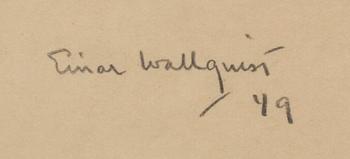 Einar Wallquist
/ 49